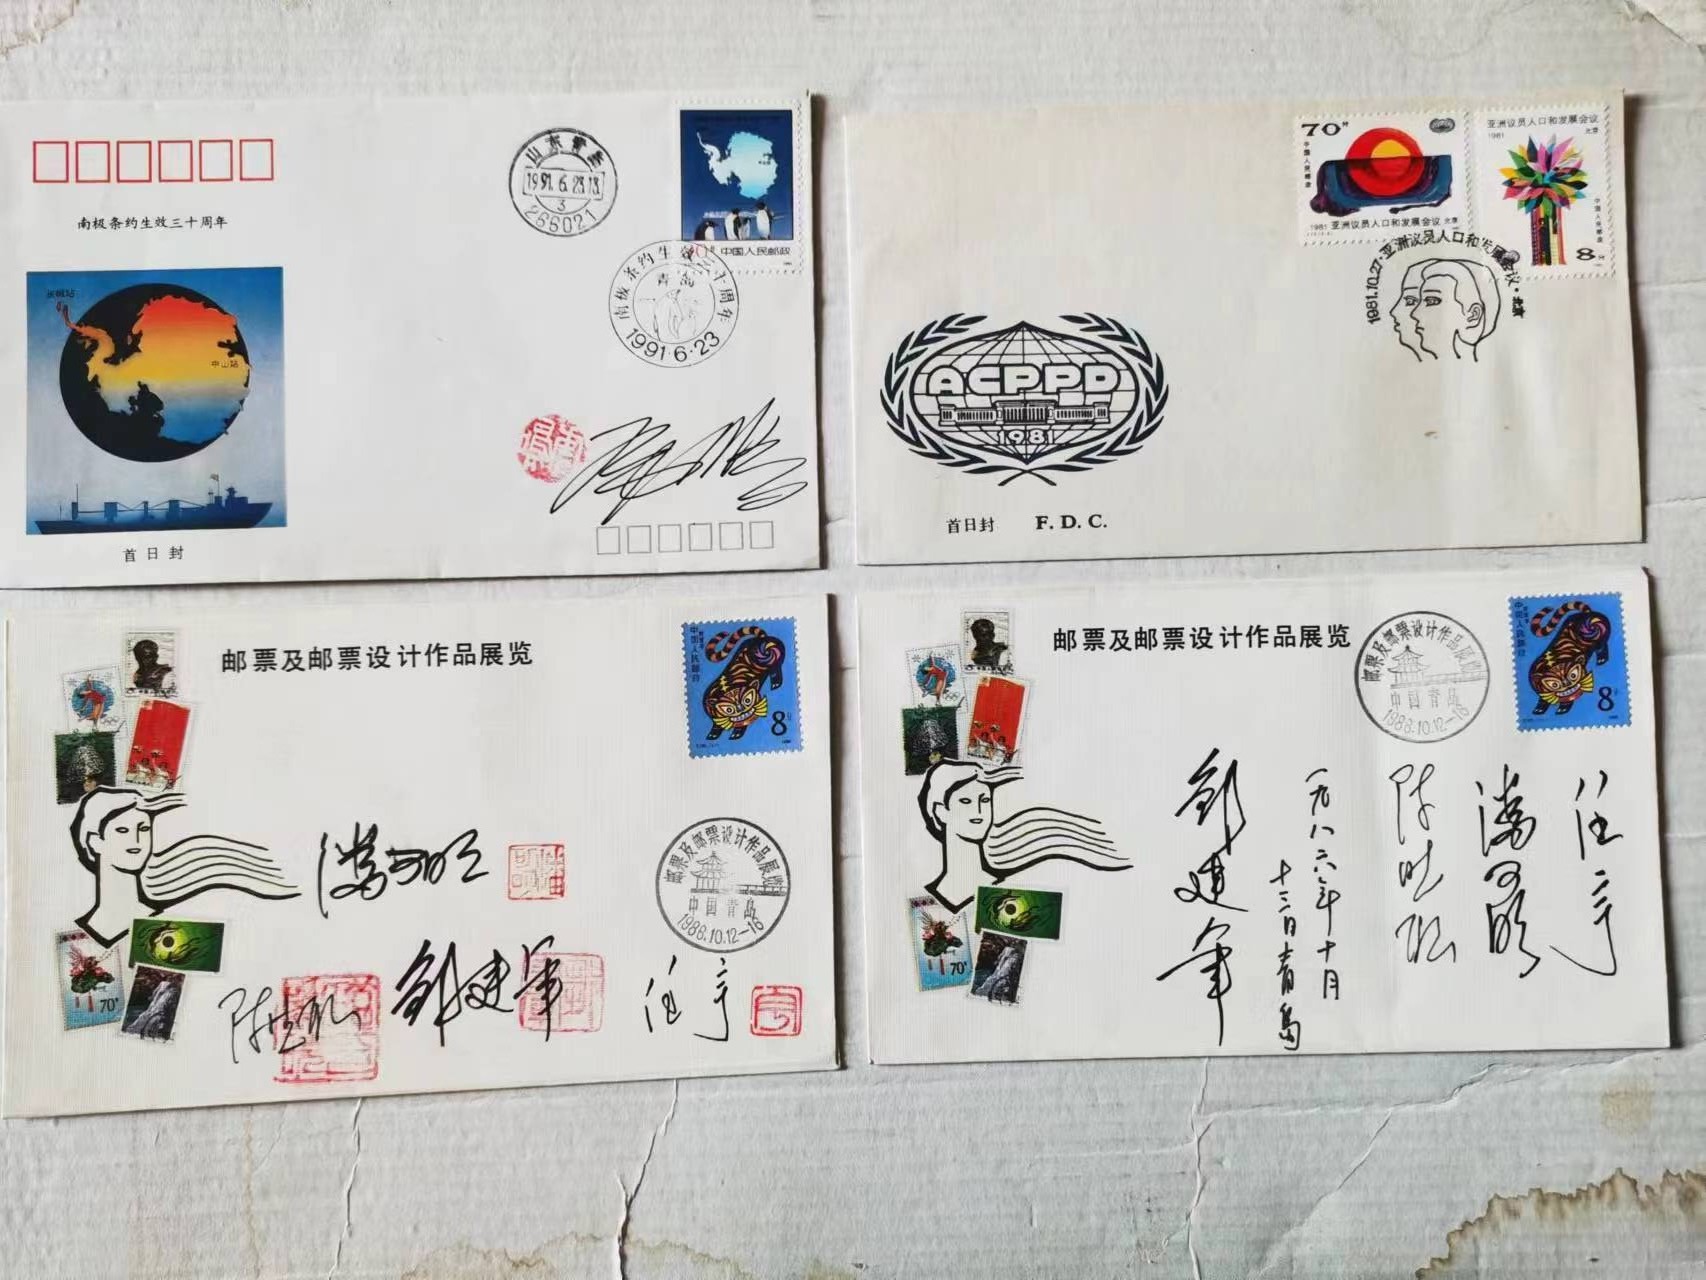 南极条约生效三十周年
长城站
中山站
首日封
山东青岛
1991.6.23.13
3
266021
中国人民邮政
南极条约生效三十周年
青岛
1991·6·23
70分
中国人民邮政
1981 亚洲议员人口和发展会议 北京
亚洲议员人口和发展会议
1981 北京
中国人民邮政
8分
1981.10.27·亚洲议员人口和发展会议·北京
ACPPD
1981
首日封 F. D. C.
邮票及邮票设计作品展览
中国人民邮政
8分
70分
邮票及邮票设计作品展览
中国青岛
1986.10.12-16
潘可明
陈晓聪
邹建军
任宇
邮票及邮票设计作品展览
邮票及邮票设计作品展览
中国青岛
1986.10.12-16
中国人民邮政
8分
70分
任宇
潘可明
陈晓聪
一九八六年十月
十二日青岛
邹建军